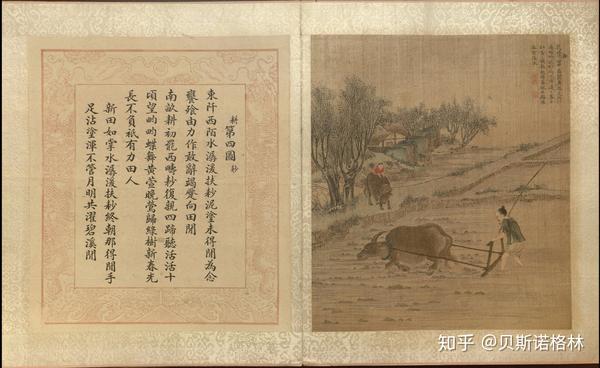 耕 第四圖 耖
東阡西陌水潺湲扶耖泥塗未得閒為念
饔飱由力作敢辭竭蹷向田間
南畝耕初罷西疇耖復親四蹄聽活活十
頃望畇畇蝶舞黃萱晚鶯歸綠樹新春光
長不負祇有力田人
新田如掌水潺湲扶耖終朝那得閒手
足沾塗渾不管月明共濯碧溪間
知乎 @贝斯诺格林